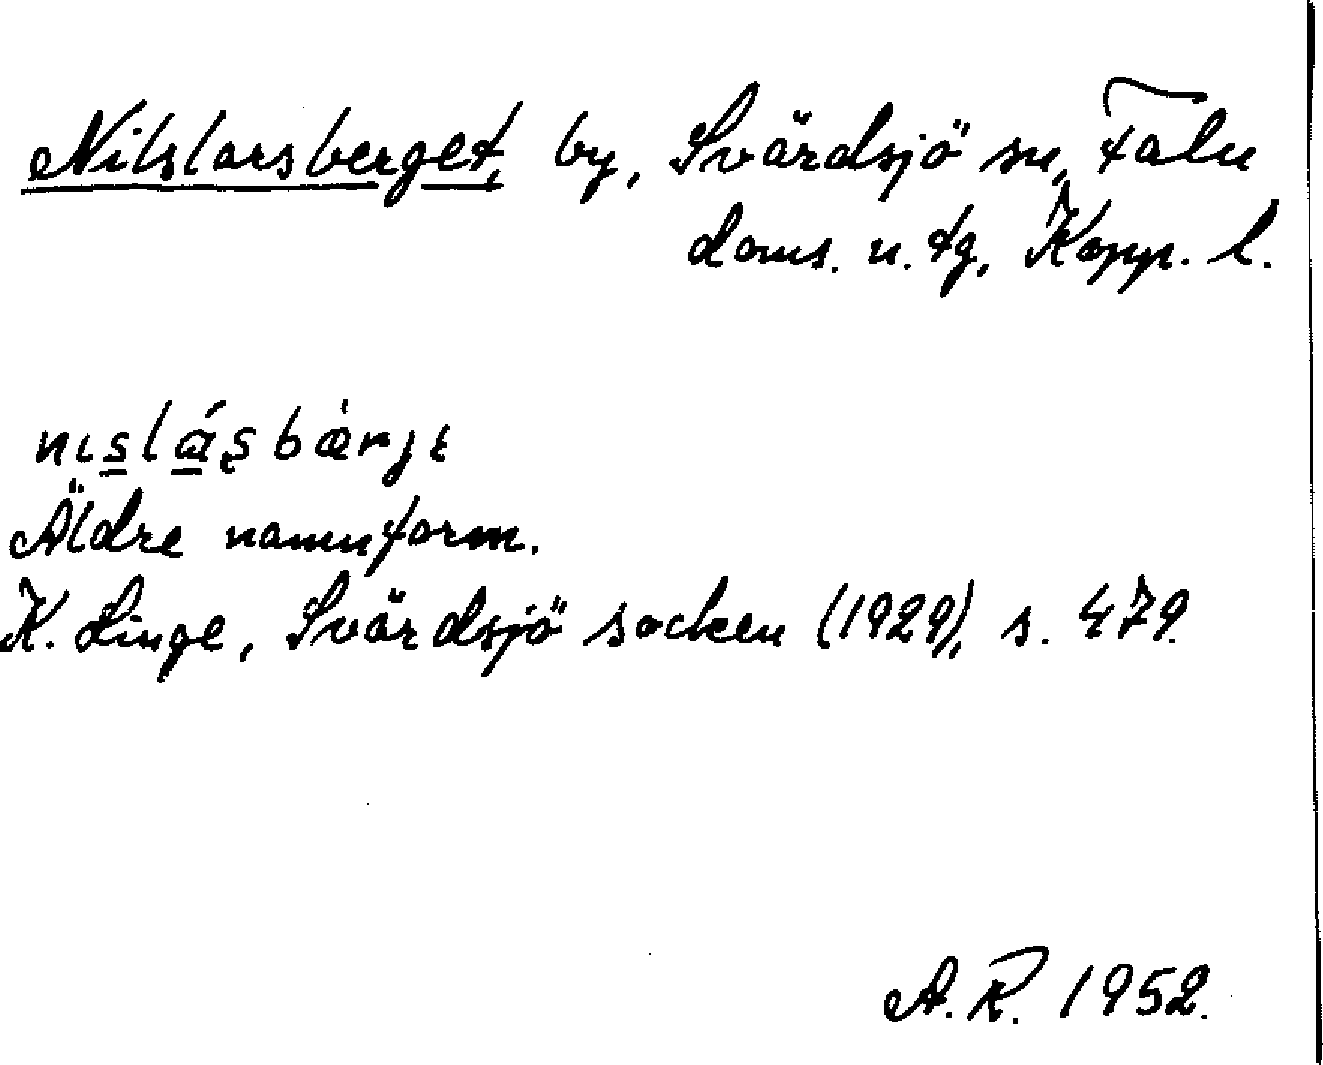 Nilslarsberget, by, Svärdsjö sn, Falu
doms. n. tg, Kopp. l.
nıslásbærjɛ
Äldre namnform.
K. Linge, Svärdsjö socken (1929), s. 479.
A. R. 1952.